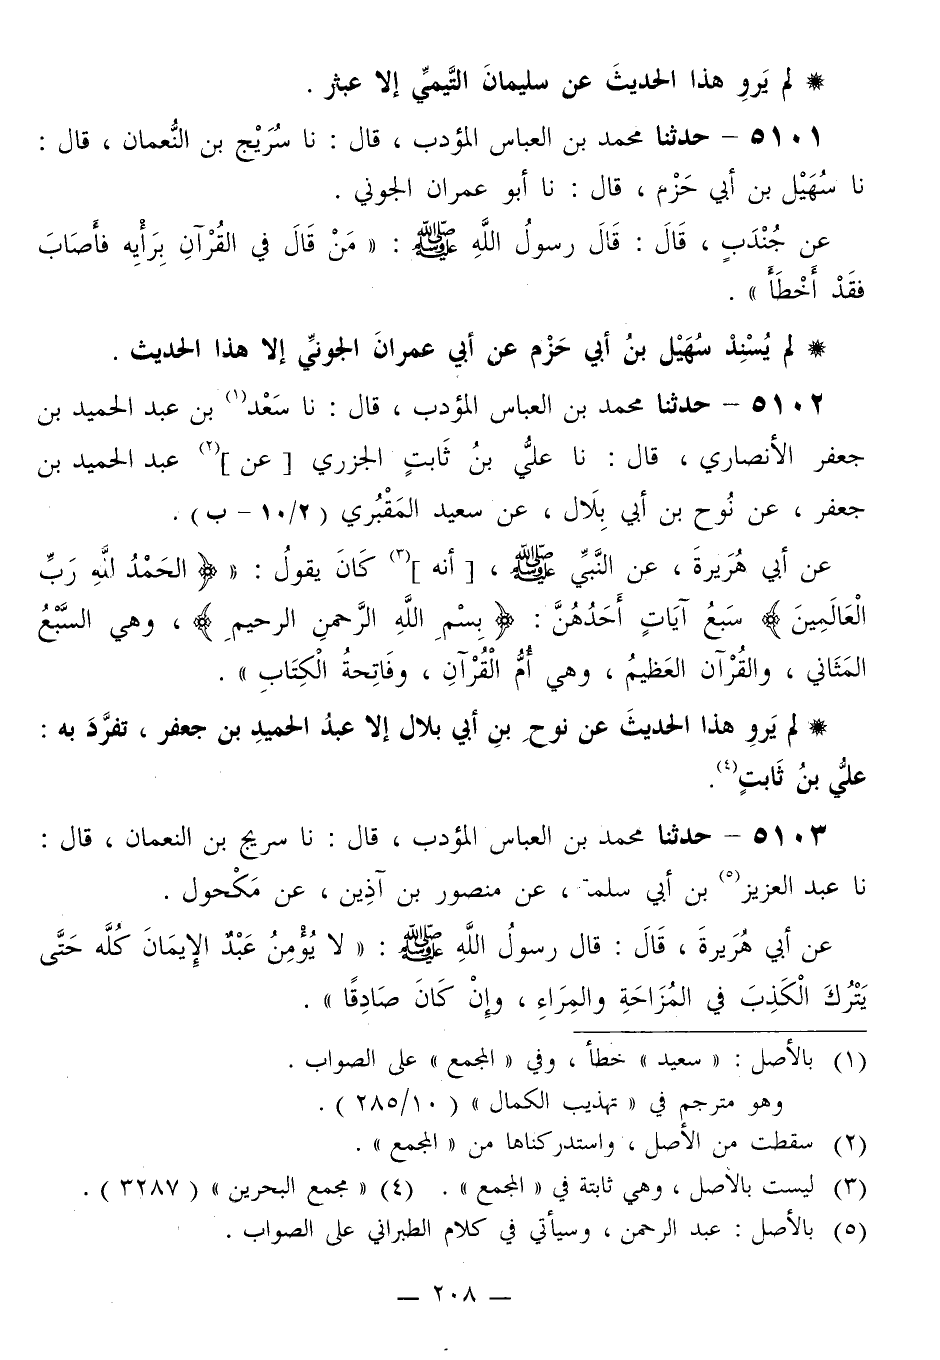 * لم يَروِ هذا الحديثَ عن سليمانَ التَّيميِّ إلا عبثر .
٥١٠١ – حدثنا محمد بن العباس المؤدب ، قال : نا سُرَيْج بن النُّعمان ، قال :
نا سُهَيْل بن أبي حَزْم ، قال : نا أبو عمران الجوني .
عن جُنْدَبٍ ، قَالَ : قَالَ رسولُ اللَّهِ ﷺ : « مَنْ قَالَ في القُرْآنِ بِرَأْيِه فأَصَابَ
فقَدْ أَخْطَأَ » .
* لم يُسْنِدْ سُهَيْل بنُ أبي حَزْم عن أبي عمرانَ الجونيِّ إلا هذا الحديث .
٥١٠٢ – حدثنا محمد بن العباس المؤدب ، قال : نا سَعْد(١) بن عبد الحميد بن
جعفر الأنصاري ، قال : نا عليُّ بنُ ثَابتٍ الجزري [ عن ](٢) عبد الحميد بن
جعفر ، عن نُوح بن أبي بِلَال ، عن سعيد المَقْبُري ( ١٠/٢ – ب ) .
عن أبي هُرَيرةَ ، عن النَّبيِّ ﷺ ، [ أنه ](٣) كَانَ يقولُ : « ﴿ الحَمْدُ للَّهِ رَبِّ
الْعَالَمِينَ ﴾ سَبَعُ آيَاتٍ أَحَدُهُنَّ : ﴿ بِسْمِ اللَّهِ الرَّحمنِ الرحيمِ ﴾ ، وهي السَّبْعُ
المَثَاني ، والقُرْآن العَظيمُ ، وهي أُمُّ الْقُرْآنِ ، وفَاتِحةُ الْكِتَابِ » .
* لم يَروِ هذا الحديثَ عن نوحِ بنِ أبي بلال إلا عبدُ الحميدِ بن جعفر ، تفرَّدَ به :
عليُّ بنُ ثَابتٍ(٤).
٥١٠٣ – حدثنا محمد بن العباس المؤدب ، قال : نا سريج بن النعمان ، قال :
نا عبد العزيز(٥) بن أبي سلمة ، عن منصور بن آذِين ، عن مَكْحول .
عن أبي هُرَيرةَ ، قَالَ : قال رسولُ اللَّهِ ﷺ : « لا يُؤْمِنُ عَبْدٌ الإِيمَانَ كُلَّه حَتَّى
يَتْرُكَ الْكَذِبَ في المُزَاحَةِ والمِرَاءِ ، وإِنْ كَانَ صَادِقًا » .
(١) بالأصل : « سعيد » خطأ ، وفي « المجمع » على الصواب .
وهو مترجم في « تهذيب الكمال » ( ٢٨٥/١٠ ) .
(٢) سقطت من الأصل ، واستدركناها من « المجمع » .
(٣) ليست بالأصل ، وهي ثابتة في « المجمع » . (٤) « مجمع البحرين » ( ٣٢٨٧ ) .
(٥) بالأصل : عبد الرحمن ، وسيأتي في كلام الطبراني على الصواب .
— ٢٠٨ —